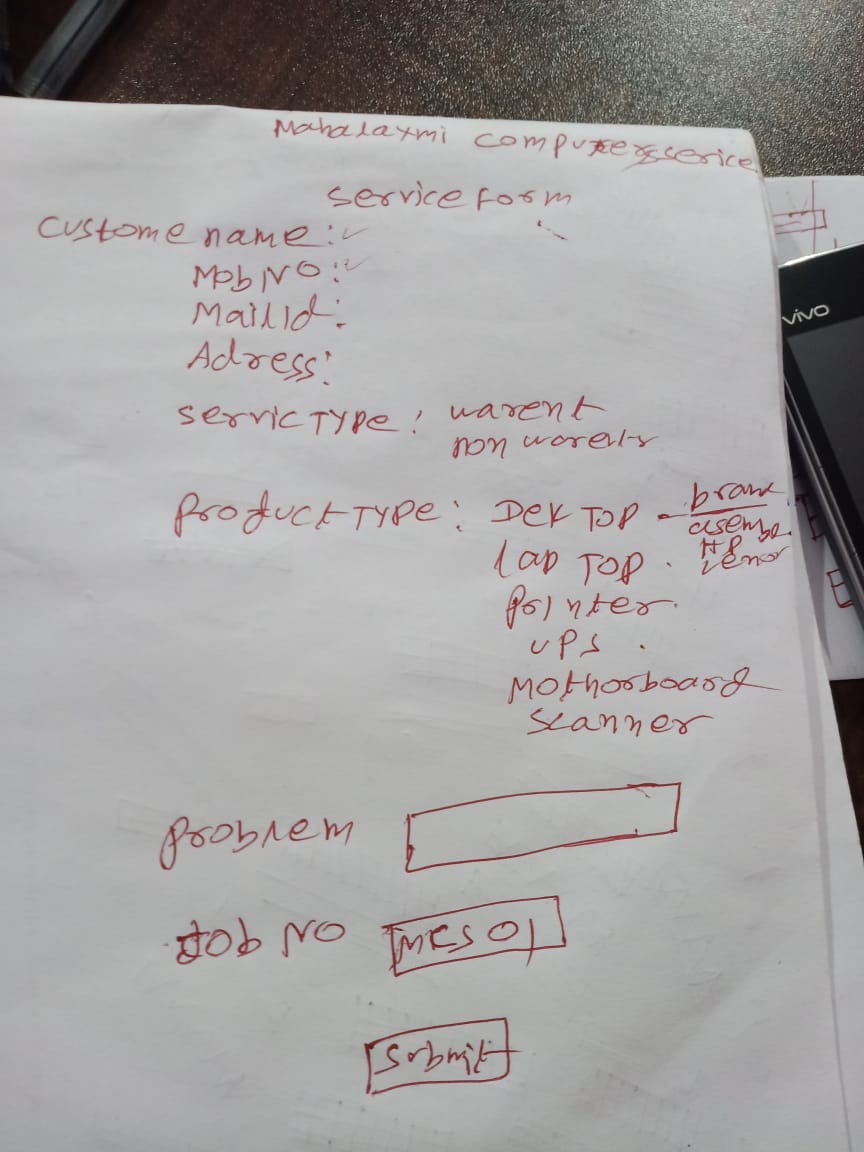 Mahalaxmi computersserice
Service form
Custome name:
Mob NO:
Mail Id:
Adress:
Servic TYPe: warent
non
Product TYPe: Dek TOP - brand
asembe
Lap TOP. HP
Lenor
Printer.
UPS.
Mothorboard
Scanner
Problem
Job NO MCS 01
Submit
vivo